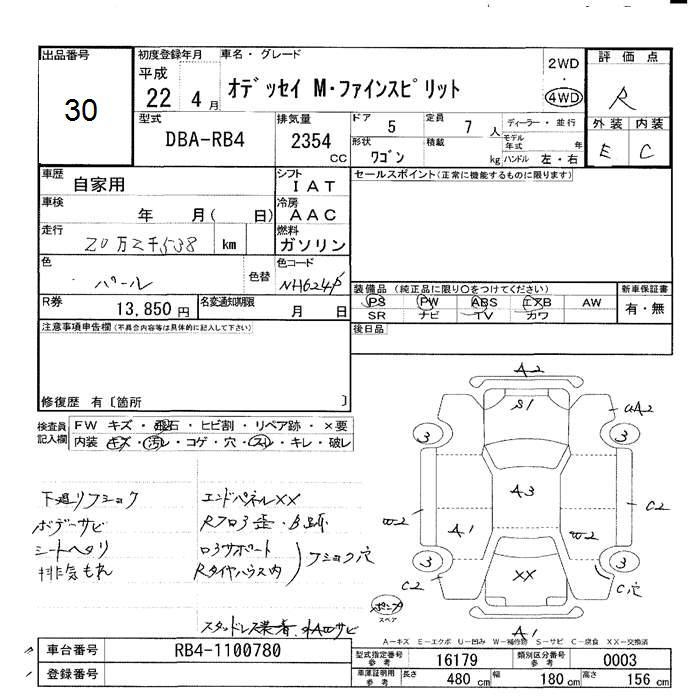 出品番号
30
初度登録年月
平成
22 4 月
車名・グレード
オデッセイ M・ファインスピリット
2WD
・
4WD
評価点
R
外装 内装
E C
型式
DBA-RB4
排気量
2354
CC
ドア 5
定員 7 人
形状 ワゴン
積載 kg
ディーラー・並行
モデル年式 年
ハンドル 左・右
車歴
自家用
シフト
IAT
車検
年 月( 日)
冷房
AAC
走行
20万2千538 km
燃料
ガソリン
色
パール
色替
色コード
NH624P
R券
13,850円
名変通知期限
月 日
セールスポイント(正常に機能するものに限ります)
装備品 (純正品に限り○をつけてください)
PS PW ABS エアB AW
SR ナビ TV カワ
新車保証書
有・無
後日品
注意事項申告欄(不具合内容等は具体的に記入して下さい)
修復歴 有〔箇所 〕
検査員記入欄
FW キズ・飛石・ヒビ割・リペア跡・×要
内装 キズ・汚レ・コゲ・穴・スレ・キレ・破レ
下廻リフショク
ボデーサビ
シートヘタリ
排気もれ
エンドパネルXX
Rフロ3歪・B跡
ロ3サポート
Rタイヤハウス内
フショク穴
スタッドレス装着
A2
S1
UA2
3
3
A3
W2
A1
W2
C2
3
3
C2
XX
C穴
A1
スペア
A―キズ E―エクボ U―凹み W―補修跡 S―サビ C―腐食 XX―交換済
車台番号
RB4-1100780
登録番号
型式指定番号
参考
16179
類別区分番号
参考
0003
車庫証明用
参考
長さ 480 cm
幅 180 cm
高さ 156 cm